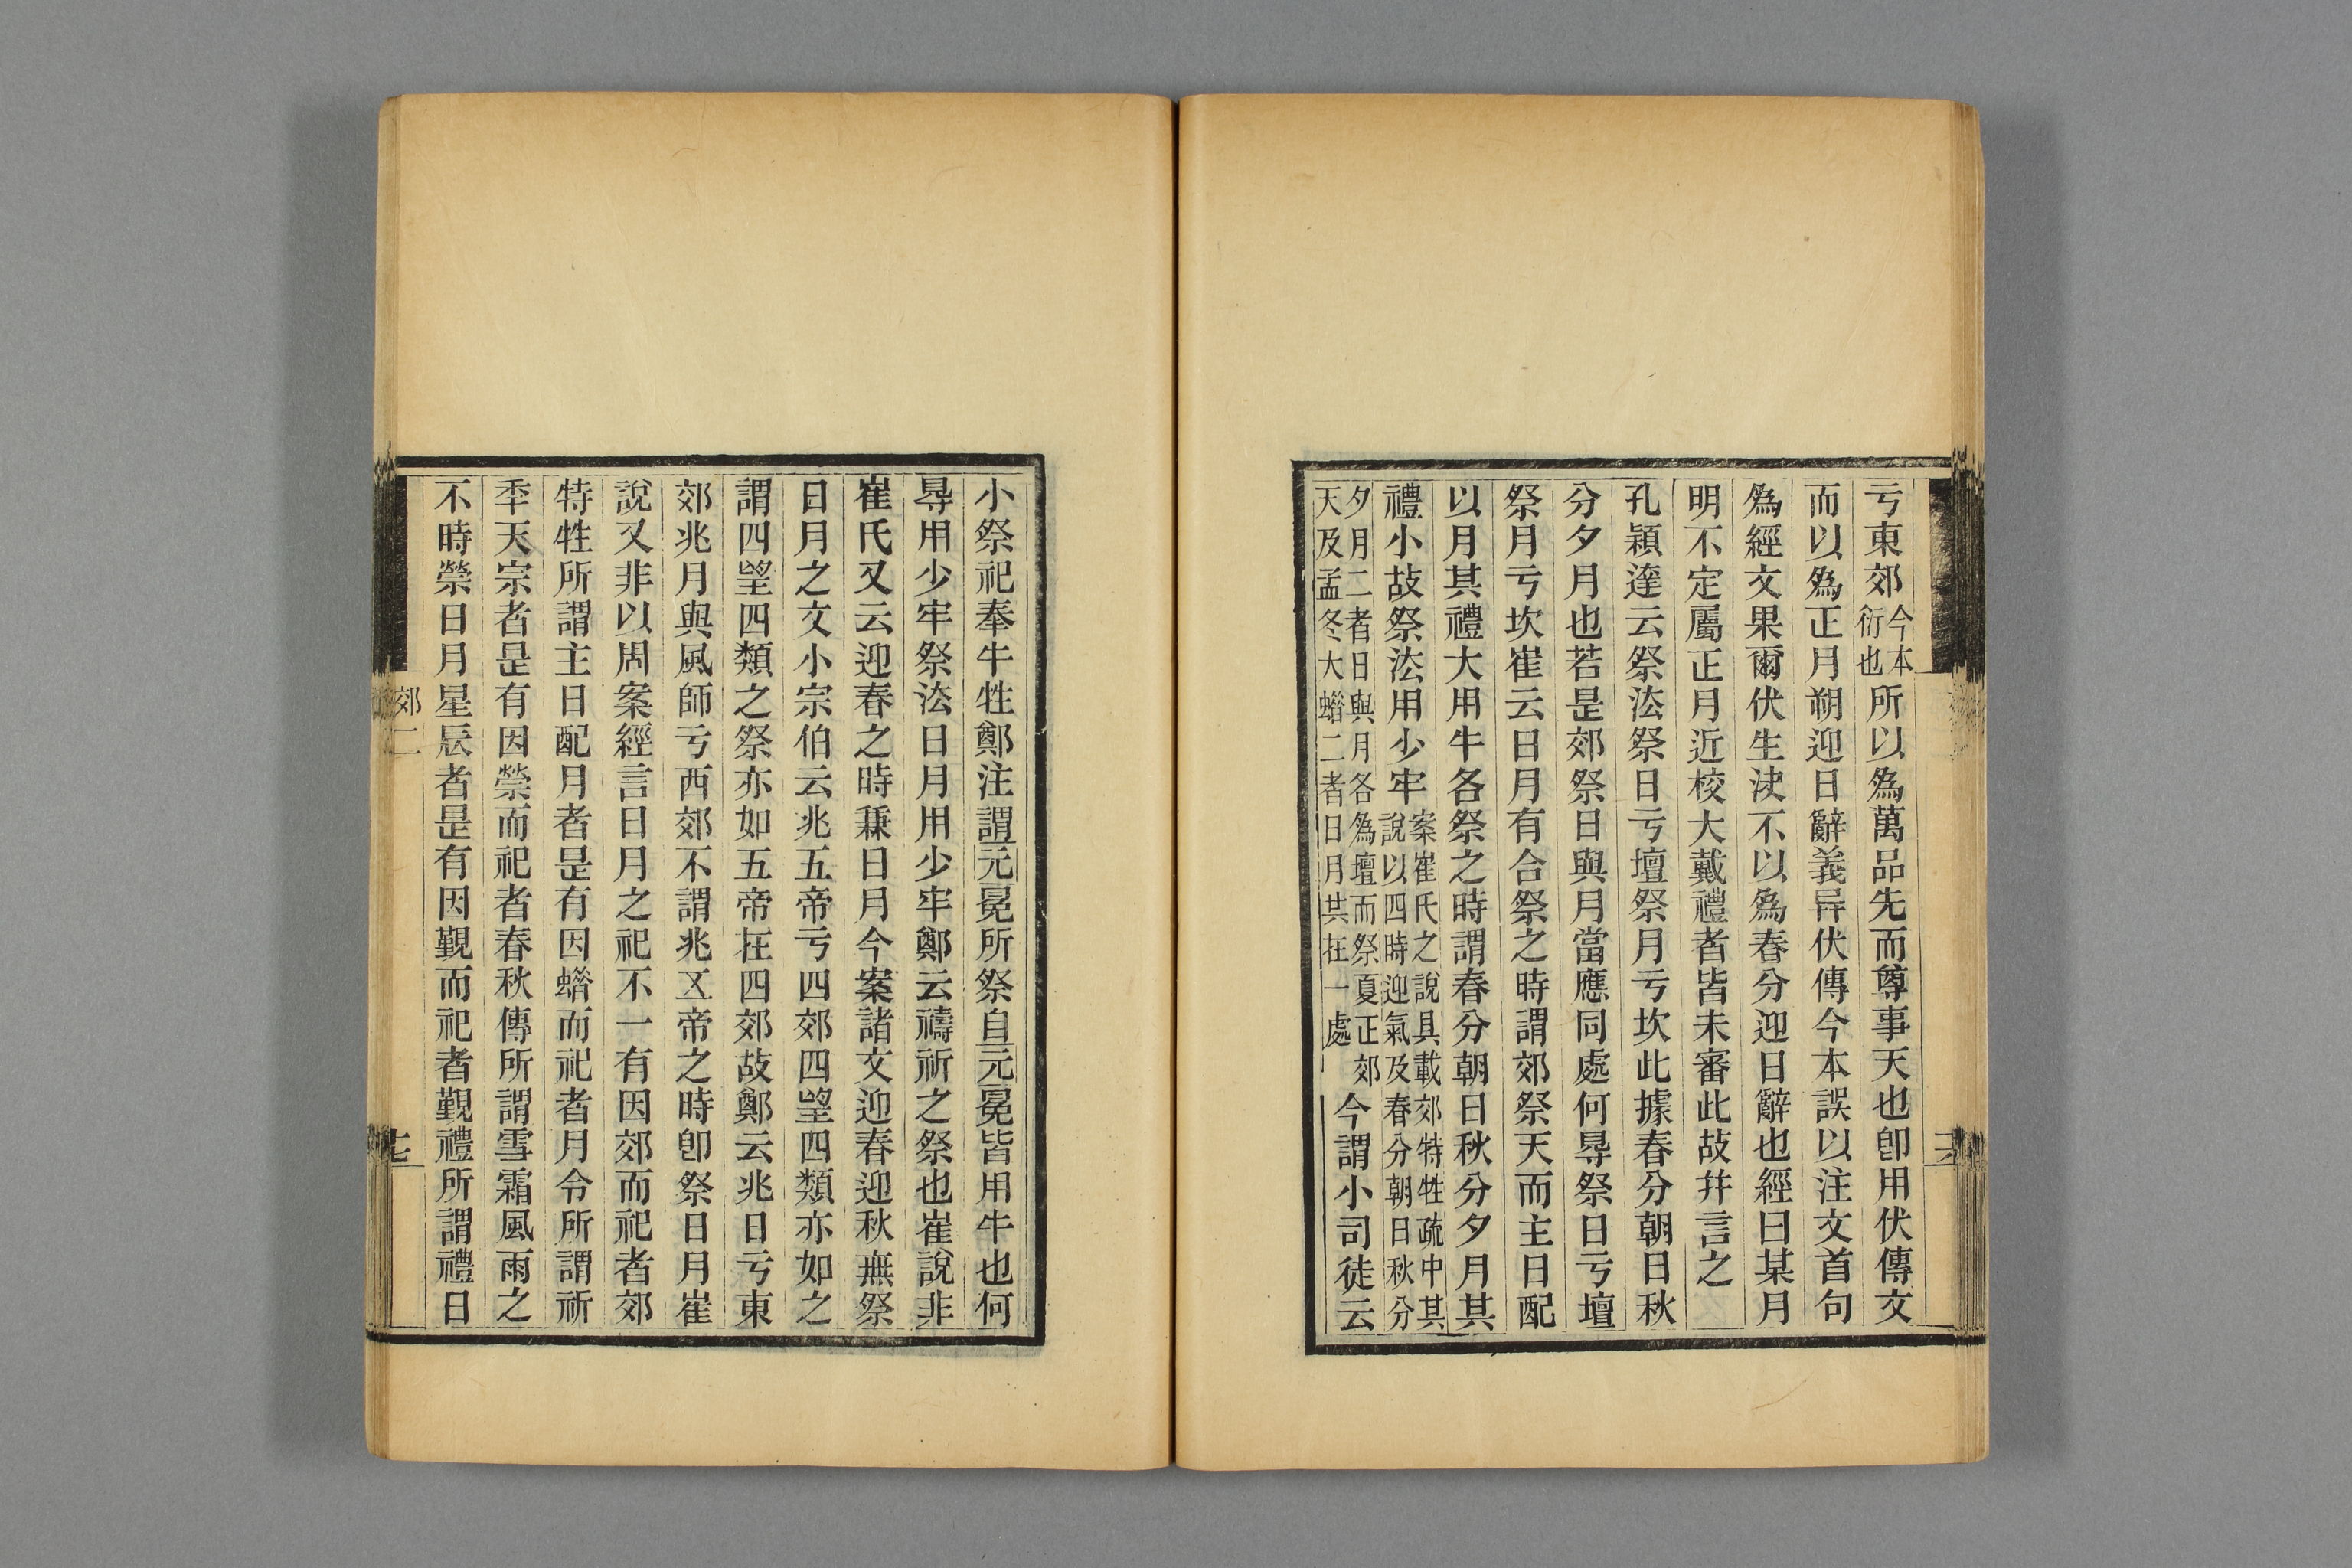 亏東郊今本衍也所以為萬品先而尊事天也卽用伏傳文
而以為正月朔迎日辭義异伏傳今本誤以注文首句
為經文果爾伏生決不以為春分迎日辭也經曰某月
明不定屬正月近校大戴禮者皆未審此故幷言之
孔穎達云祭法祭日亏壇祭月亏坎此據春分朝日秋
分夕月也若是郊祭日與月當應同處何㝵祭日亏壇
祭月亏坎崔云日月有合祭之時謂郊祭天而主日配
以月其禮大用牛各祭之時謂春分朝日秋分夕月其
禮小故祭法用少牢案崔氏之說具載郊特牲疏中其
說以四時迎氣及春分朝日秋分
夕月二者日與月各為壇而祭夏正郊
天及孟冬大蜡二者日月共在一處今謂小司徒云
小祭祀奉牛牲鄭注謂元冕所祭自元冕皆用牛也何
㝵用少牢祭法日月用少牢鄭云禱祈之祭也崔說非
崔氏又云迎春之時兼日月今案諸文迎春迎秋無祭
日月之文小宗伯云兆五帝亏四郊四朢四類亦如之
謂四朢四類之祭亦如五帝在四郊故鄭云兆日亏東
郊兆月與風師亏西郊不謂兆五帝之時卽祭日月崔
說又非以周案經言日月之祀不一有因郊而祀者郊
特牲所謂主日配月者是有因蜡而祀者月令所謂祈
秊天宗者是有因禜而祀者春秋傳所謂雪霜風雨之
不時禜日月星辰者是有因覲而祀者覲禮所謂禮日
郊二
十七